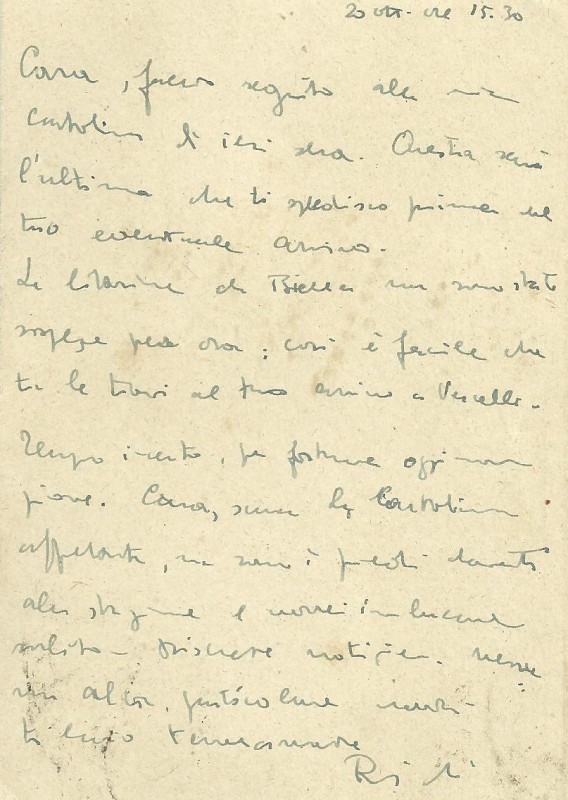 20 ott. ore 15.30
Cara, faccio seguito alla mia
cartolina di ieri sera. Questa sarà
l'ultima che ti spedisco prima del
tuo eventuale arrivo.
Le littorine di Biella non sono state
sospese per ora; così è facile che
tu le trovi al tuo arrivo a Vercelli.
Tempo incerto, per fortuna oggi non
piove. Cara, scusa la cartolina
affrettata, ma sono in piedi davanti
alla stazione e vorrei imbucare
subito. Discrete notizie. Nessun
altra particolare
ti bacio teneramente